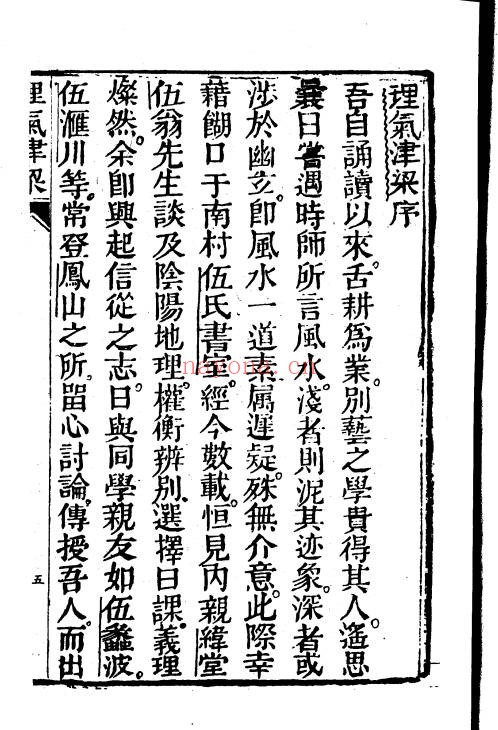 理氣津梁序
吾自誦讀以來。舌耕為業。別藝之學貴得其人。遙思
曩日嘗遇時師所言風水。淺者則泥其迹象。深者或
涉於幽玄。卽風水一道素属遲疑。殊無介意。此際幸
藉餬口于南村伍氏書室。經今数載。恒見内親緯堂
伍翁先生談及陰陽地理。權衡辨別。選擇日課。義理
燦然。余卽興起信從之志。日與同學親友如伍蠡波。
伍滙川等。常登鳳山之所。畱心討論。傳授吾人。而出
理氣津梁
五
nayona.cn